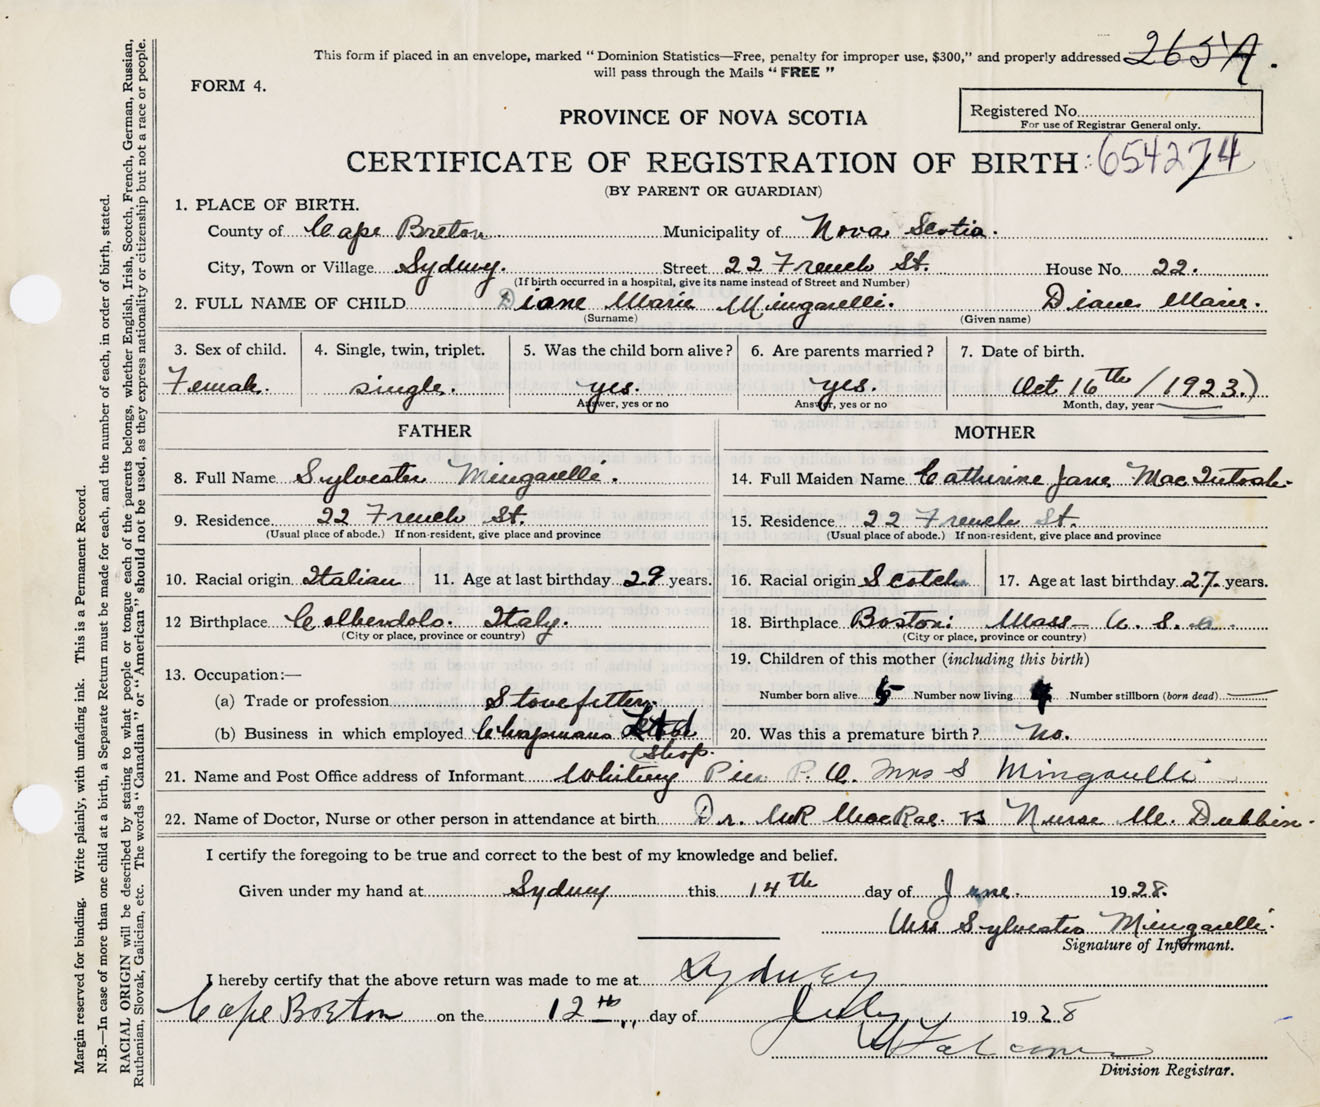 This form if placed in an envelope, marked "Dominion Statistics—Free, penalty for improper use, $300," and properly addressed 265A.
will pass through the Mails "FREE"
FORM 4.
PROVINCE OF NOVA SCOTIA
Registered No.
For use of Registrar General only.
CERTIFICATE OF REGISTRATION OF BIRTH 654274
(BY PARENT OR GUARDIAN)
1. PLACE OF BIRTH.
County of Cape Breton Municipality of Nova Scotia.
City, Town or Village Sydney. Street 22 French St. House No. 22.
(If birth occurred in a hospital, give its name instead of Street and Number)
2. FULL NAME OF CHILD Diane Marie Mingarelli. Diane Marie.
(Surname) (Given name)
3. Sex of child. 4. Single, twin, triplet. 5. Was the child born alive? 6. Are parents married? 7. Date of birth.
Female. single. yes. yes. Oct 16th / 1923.)
Answer, yes or no Answer, yes or no Month, day, year
FATHER MOTHER
8. Full Name Sylvester Mingarelli. 14. Full Maiden Name Catherine Jane MacIntosh
9. Residence 22 French St. 15. Residence 22 French St.
(Usual place of abode.) If non-resident, give place and province (Usual place of abode.) If non-resident, give place and province
10. Racial origin Italian 11. Age at last birthday 29 years. 16. Racial origin Scotch 17. Age at last birthday 27 years.
12 Birthplace Colberdolo. Italy. 18. Birthplace Boston: Mass— U.S.a.
(City or place, province or country) (City or place, province or country)
13. Occupation:— 19. Children of this mother (including this birth)
(a) Trade or profession Stovefitter. Number born alive 5 Number now living 4 Number stillborn (born dead) —
(b) Business in which employed Chapmans 20. Was this a premature birth? No.
Shop.
21. Name and Post Office address of Informant Whitney Pier P.O. Mrs S Mingarelli
22. Name of Doctor, Nurse or other person in attendance at birth Dr. MacRae. Nurse Mc. Dubbin.
I certify the foregoing to be true and correct to the best of my knowledge and belief.
Given under my hand at Sydney this 14th day of June. 1928.
Mrs Sylvester Mingarelli.
Signature of Informant.
I hereby certify that the above return was made to me at Sydney
Cape Breton on the 12th day of July 1928
Division Registrar.
Margin reserved for binding. Write plainly, with unfading ink. This is a Permanent Record.
N.B.—In case of more than one child at a birth, a Separate Return must be made for each, and the number of each, in order of birth, stated.
RACIAL ORIGIN will be described by stating to what people or tongue each of the parents belongs, whether English, Irish, Scotch, French, German, Russian,
Ruthenian, Slovak, Galician, etc. The words "Canadian" or "American" should not be used, as they express nationality or citizenship but not a race or people.